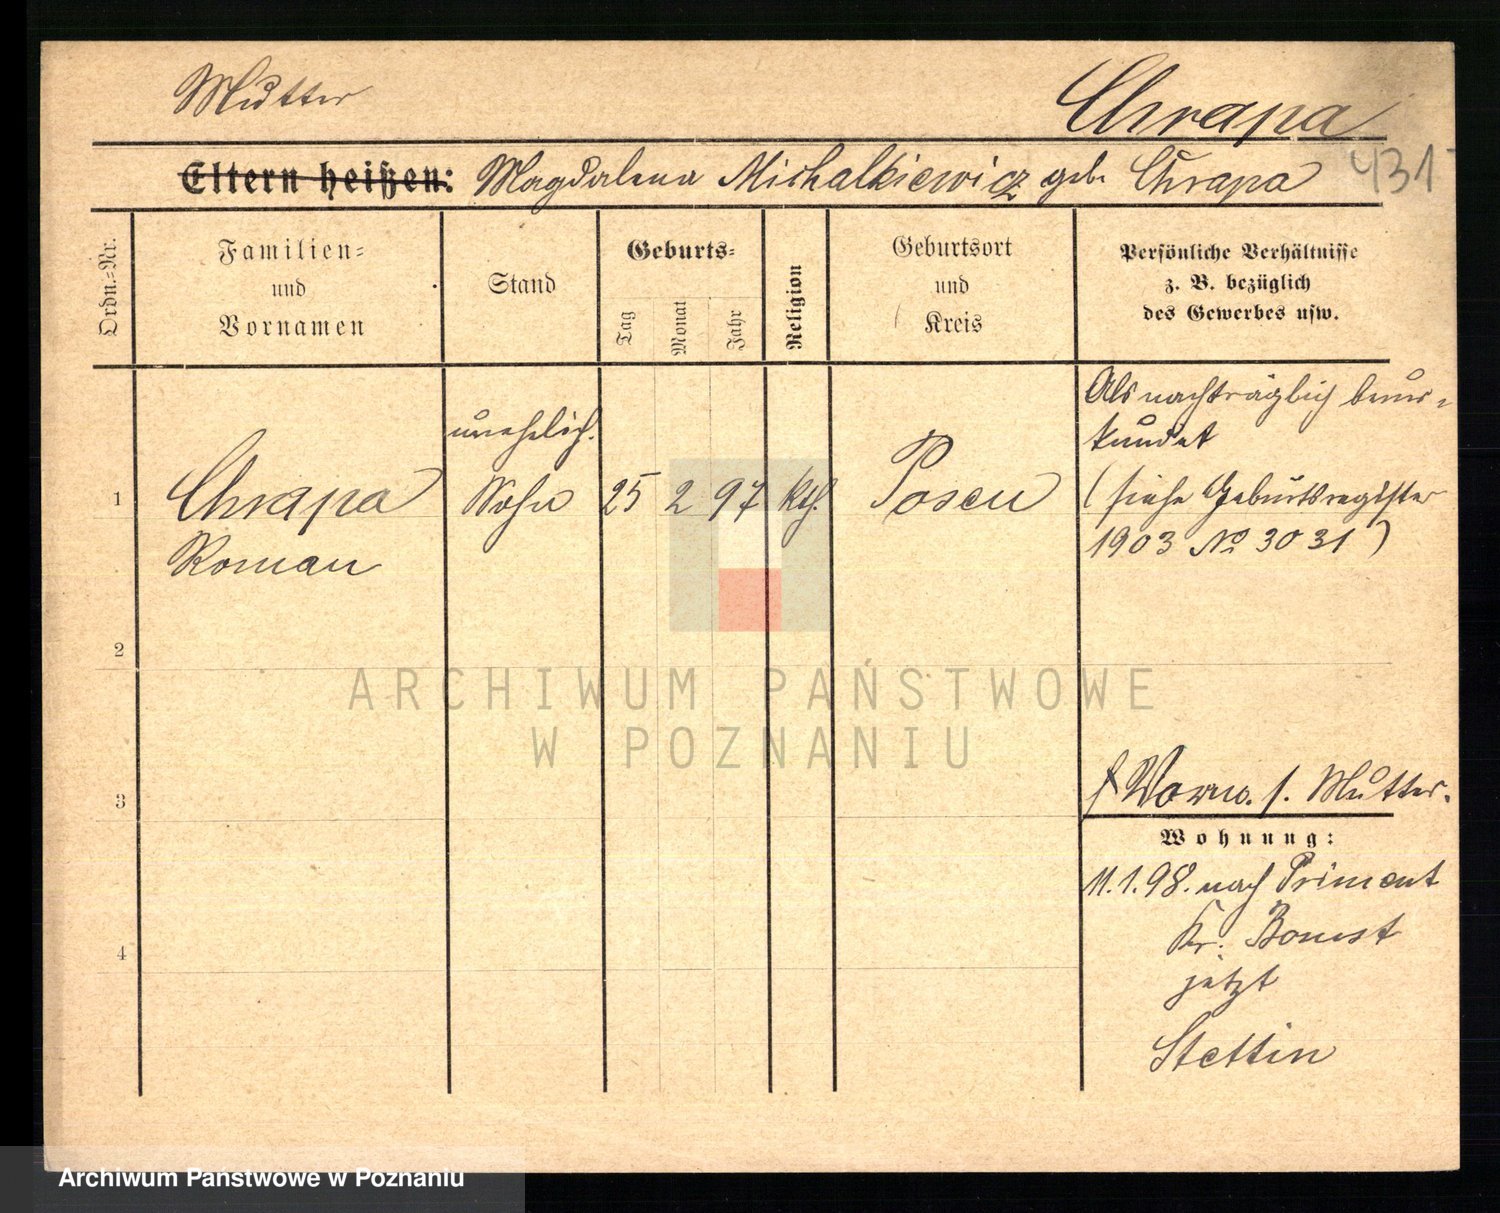 Mutter
Chrapa
Eltern heißen: Magdalena Michalkiewicz geb. Chrapa 431
Ordn.=Nr.
Familien=
und
Vornamen
Stand
Geburts=
Tag
Monat
Jahr
Religion
Geburtsort
und
Kreis
Persönliche Verhältnisse
z. B. bezüglich
des Gewerbes usw.
1
Chrapa
Roman
unehelich.
Sohn
25 2 97 kth.
Posen
Als nachträglich beur=
kundet
(siehe Geburtsregister
1903 No 3031)
2
3
4
Vorm. s. Mutter.
Wohnung:
11.1.98. nach Priment
Kr. Bomst
jetzt
Stettin
ARCHIWUM PAŃSTWOWE
W POZNANIU
Archiwum Państwowe w Poznaniu